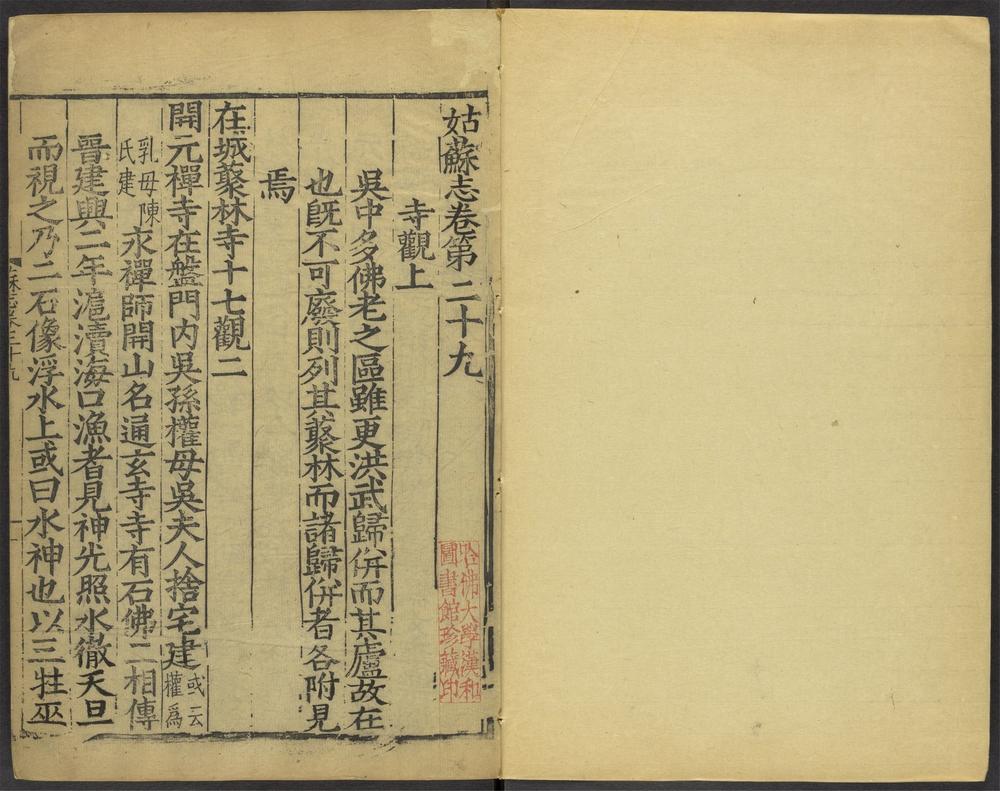 姑蘇志卷第二十九
寺觀上
吳中多佛老之區雖更洪武歸併而其廬故在
也旣不可廢則列其藂林而諸歸併者各附見
焉
在城藂林寺十七觀二
開元禪寺在盤門內吳孫權母吳夫人捨宅建或云權爲
乳母陳氏建永禪師開山名通玄寺寺有石佛二相傳
晉建興二年滬瀆海口漁者見神光照水徹天旦
而視之乃二石像浮水上或曰水神也以三牲巫
哈佛大學漢和
圖書館珍藏印